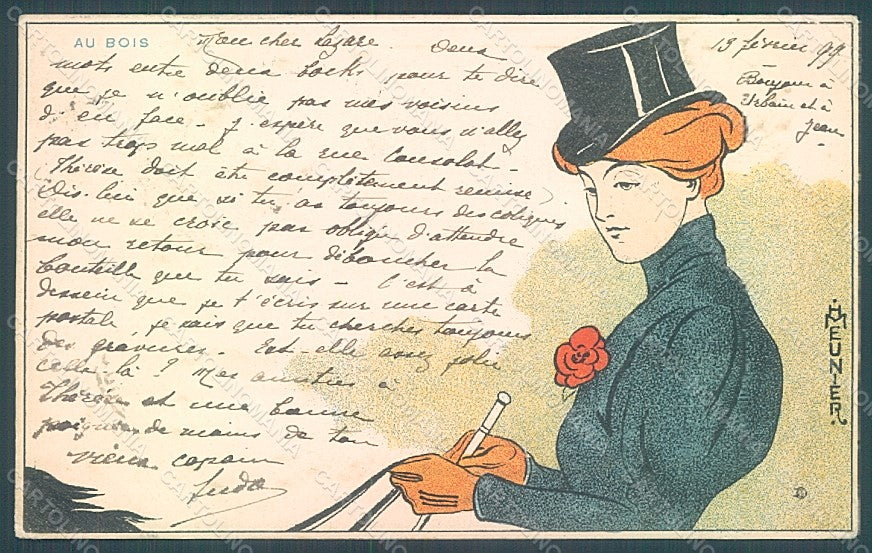 AU BOIS
Mon cher Lazare. Deux
mots entre deux bocks pour te dire
que je n'oublie pas mes voisins
d'en face - J'espère que vous n'allez
pas trop mal à la rue
Thérèse doit être complètement remise
Dis-lui que si tu as toujours des coliques
elle ne se croie pas obligée d'attendre
mon retour pour déboucher la
bouteille que tu sais - C'est à
dessein que je t'écris sur une carte
postale, je sais que tu cherches toujours
des gravures. Est-elle assez jolie
celle-là ? Mes amitiés à
Thérèse et une bonne
poignée de mains de ton
vieux copain
13 février 99
Bonjour à
Urbain et à
Jean
H MEUNIER
CARTOLINOMANIA